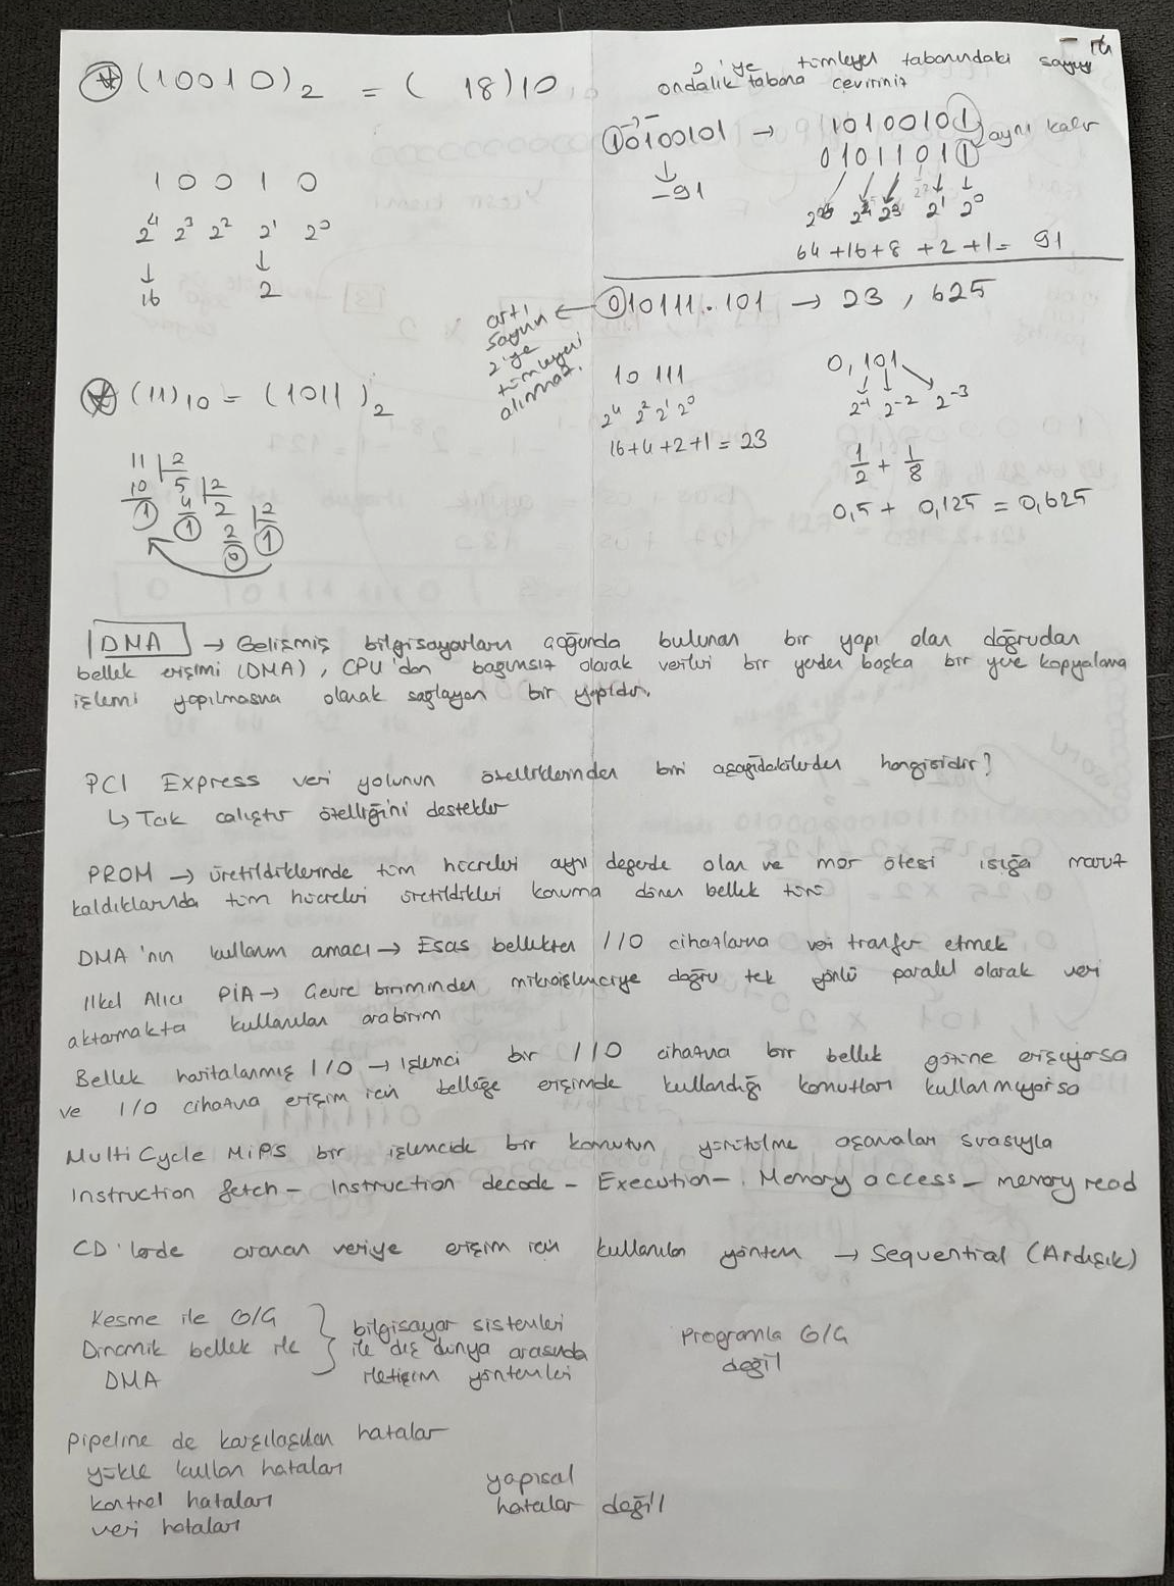 (10010)₂ = ( 18)10
1 0 0 1 0
2⁴ 2³ 2² 2¹ 2⁰
↓ ↓
16 2
(11)₁₀ = (1011 )₂
11 | 2
10 5 | 2
1 4 2 | 2
1 2 1
0
2'ye tümleyen tabanındaki sayıyı
ondalık tabana çeviriniz
10100101 → 10100101 aynı kalır
↓ 01011011
-91
2⁶ 2⁴ 2³ 2¹ 2⁰
64 +16+8 +2 +1= 91
010111.101 → 23 , 625
artı
sayının
2'ye
tümleyeni
alınmaz.
10 111
2⁴ 2² 2¹ 2⁰
16+4+2+1=23
0,101
2⁻¹ 2⁻² 2⁻³
1/2 + 1/8
0,5 + 0,125 = 0,625
DMA → Gelişmiş bilgisayarların çoğunda bulunan bir yapı olan doğrudan
bellek erişimi (DMA), CPU'dan bağımsız olarak verileri bir yerden başka bir yere kopyalama
işlemi yapılmasına olanak sağlayan bir yapıdır.
PCI Express veri yolunun özelliklerinden biri aşağıdakilerden hangisidir?
↳ Tak çalıştır özelliğini destekler
PROM → üretildiklerinde tüm hücreleri aynı değerde olan ve mor ötesi ışığa maruz
kaldıklarında tüm hücreleri üretildikleri konuma dönen bellek türü
DMA 'nın kullanım amacı → Esas bellekten I/O cihazlarına veri tranfer etmek
Ilkel Alıcı PiA → Çevre biriminden mikroişlemciye doğru tek yönlü paralel olarak veri
aktarmakta kullanılan arabirim
Bellek haritalanmış I/O → İşlemci bir I/O cihazına bir bellek gözüne erişiyorsa
ve I/O cihazına erişim için belleğe erişimde kullandığı komutları kullanmıyorsa
Multi Cycle MiPS bir işlemcide bir komutun yürütülme aşamaları sırasıyla
Instruction fetch - Instruction decode - Execution - Memory access - memory read
CD'lerde aranan veriye erişim için kullanılan yöntem → Sequential (Ardışık)
Kesme ile G/Ç
Dinamik bellek ile
DMA
bilgisayar sistemleri
ile dış dünya arasında
iletişim yöntemleri
Programla G/Ç
değil
Pipeline de karşılaşılan hatalar
yükle kullan hataları
kontrol hataları
veri hataları
yapısal
hatalar değil